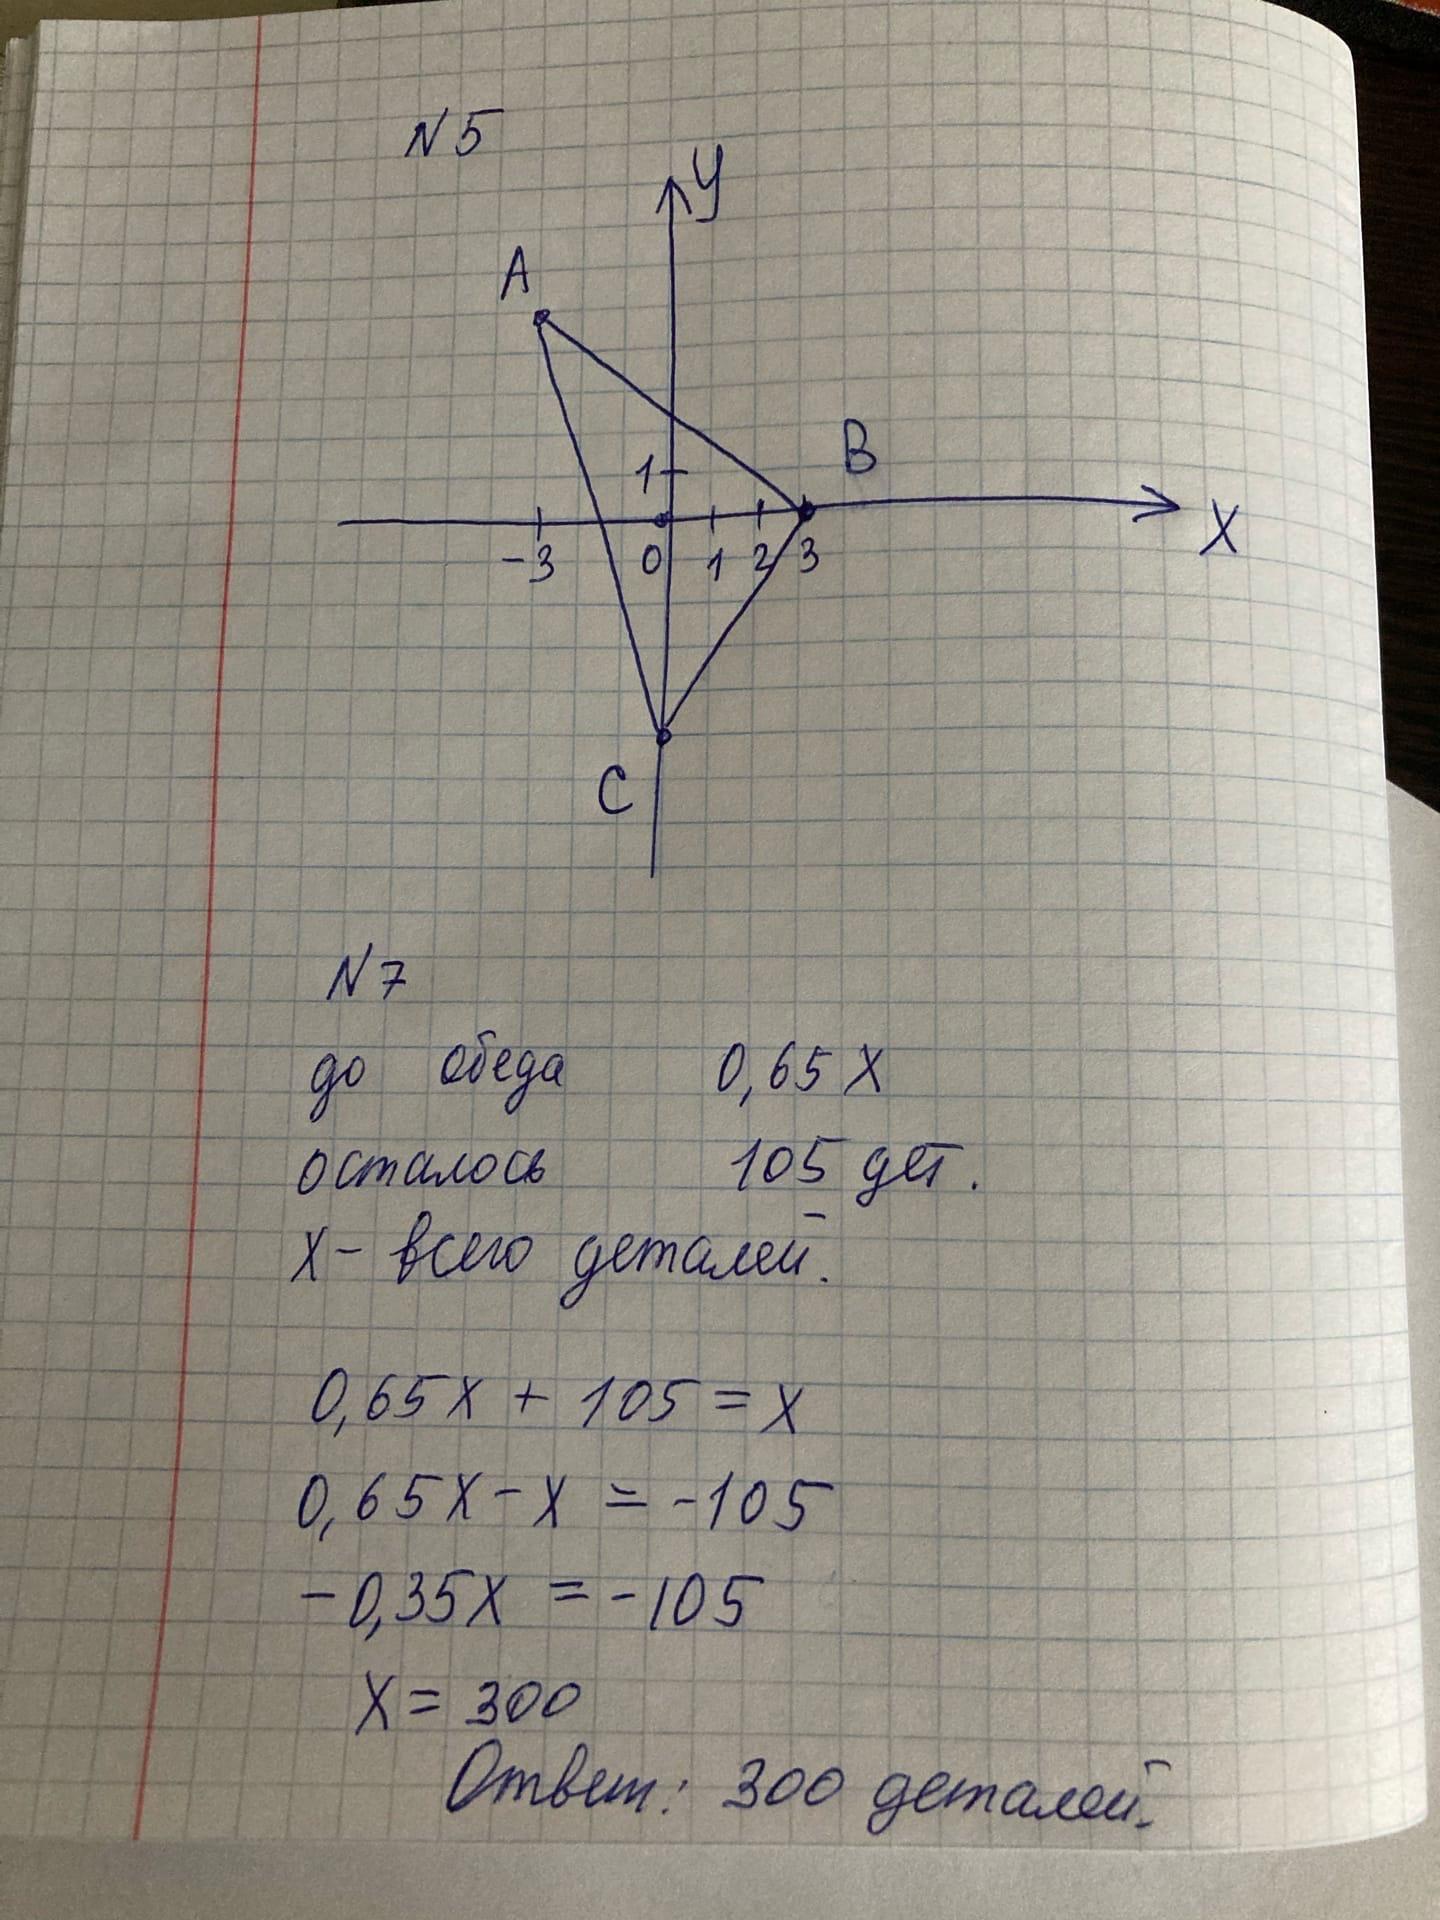 N 5
У
A
1
B
-3 0 1 2 3
X
C
N 7
до обеда 0,65 X
осталось 105 дет.
X - всего деталей.
0,65X + 105 = X
0,65X - X = -105
-0,35X = -105
X = 300
Ответ: 300 деталей.